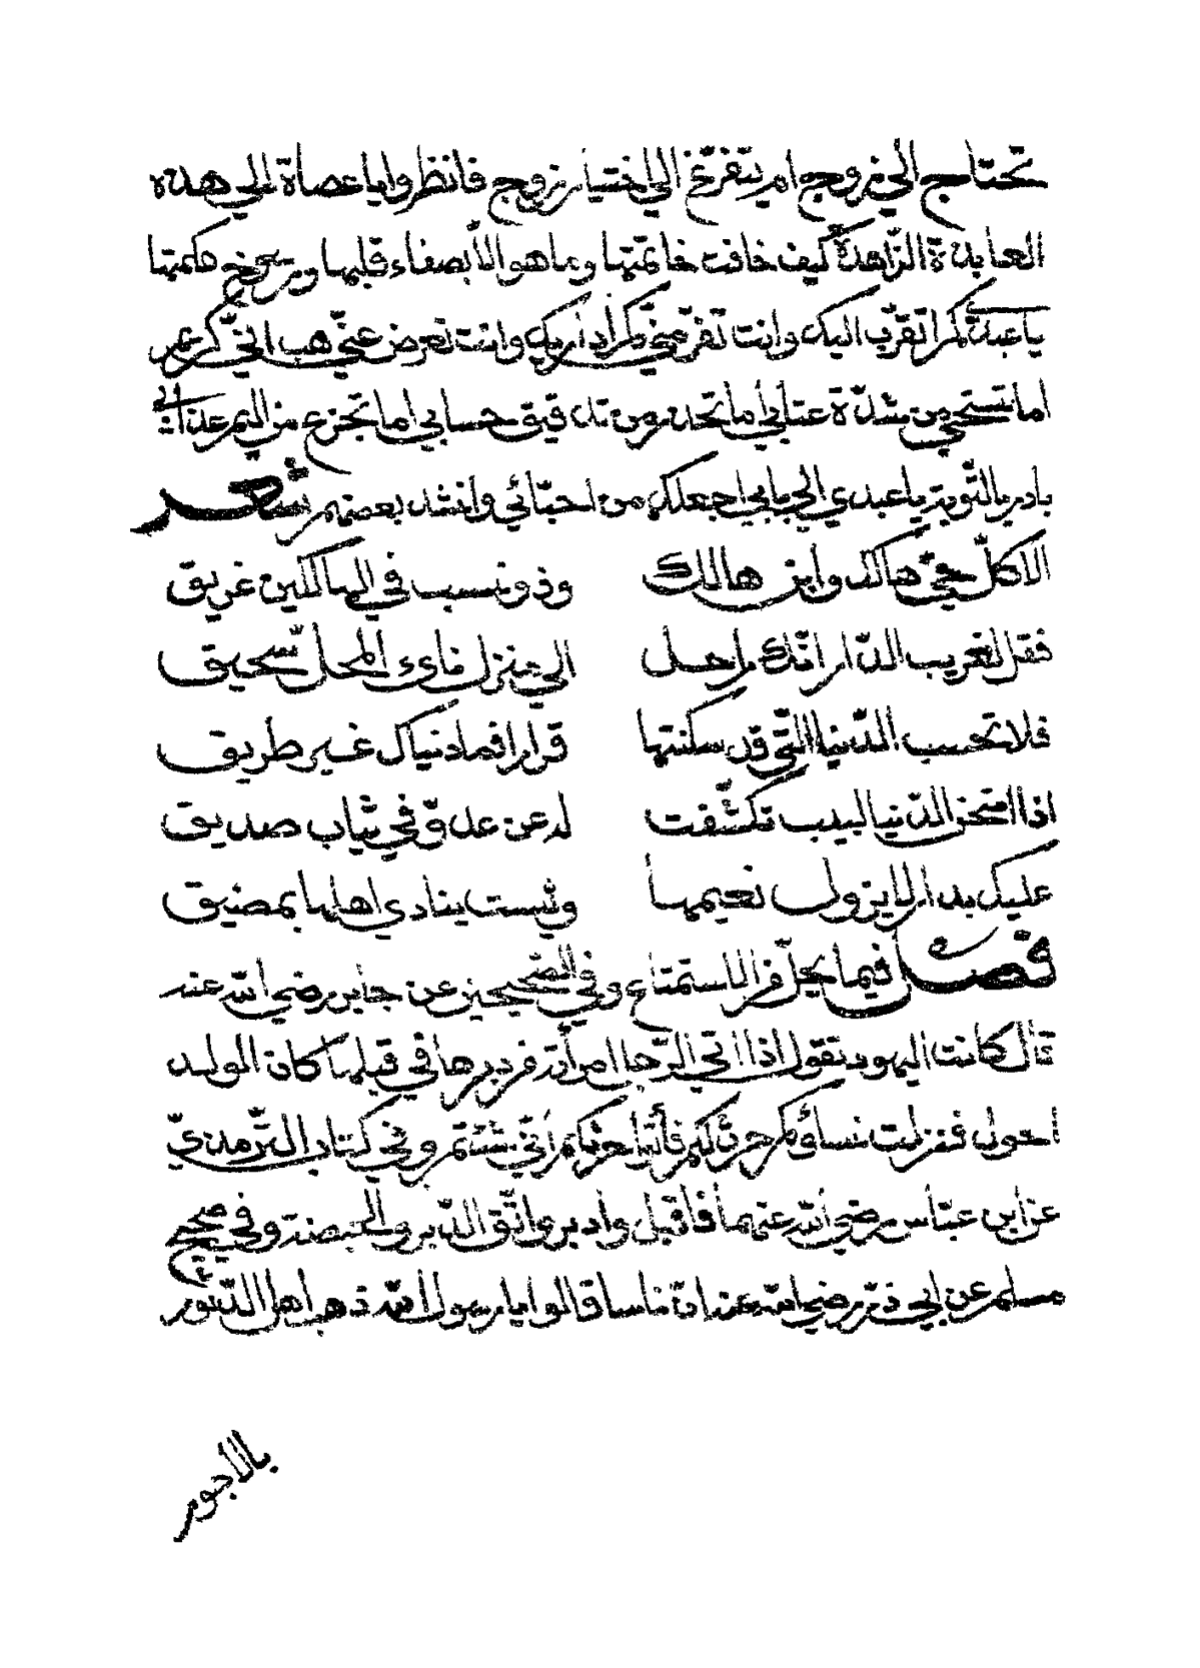 تحتاج الى زوج ام يتفرّغ الى اختيار زوج فانظروا يا عصاة الى هذه
العابدة الزّاهدة كيف خافت خاتمتها وما هو الّا بصفاء قلبها ورسوخ حكمتها
يا عبدي كم اتقرّب اليك وانت تفرّ منّي كم أداريك وانت تعرض عنّي هب انّي كريم
اما تستحي من شدّة عتابي أما تحذر من تدقيق حسابي اما تجزع من اليم عذابي
بادر بالتّوبة يا عبدي الى بابي اجعلك من احبّائي وانشد بعضهم شعر
الا كلّ حيّ هالك وابن هالك وذو نسب في الهالكين غريق
فقل لغريب الدّار انّك راحل الى منزل ناىء المحلّ سحيق
فلا تحسب الدّنيا الّتي قد سكنتها قرارا فما دنياك غير طريق
اذا امتحن الدّنيا لبيب تكشّفت له عن عدوّ في ثياب صديق
عليك بدار لا يزول نعيمها وليست ينادي اهلها بمضيق
فصل فيما يحلّ من الاستمتاع وفي الصّحيحين عن جابر رضي الله عنه
قال كانت اليهود تقول اذا اتى الرّجل امرأته من دبرها في قبلها كان الولد
احول فنزلت نساؤكم حرث لكم فأتوا حرثكم أنّى شئتم وفي كتاب التّرمذيّ
عن ابن عبّاس رضي الله عنهما فأقبل وأدبر واتّق الدّبر والحيضة وفي صحيح
مسلم عن ابي ذرّ رضي الله عنه انّ ناسا قالوا يا رسول الله ذهب اهل الدّثور
بالأجور